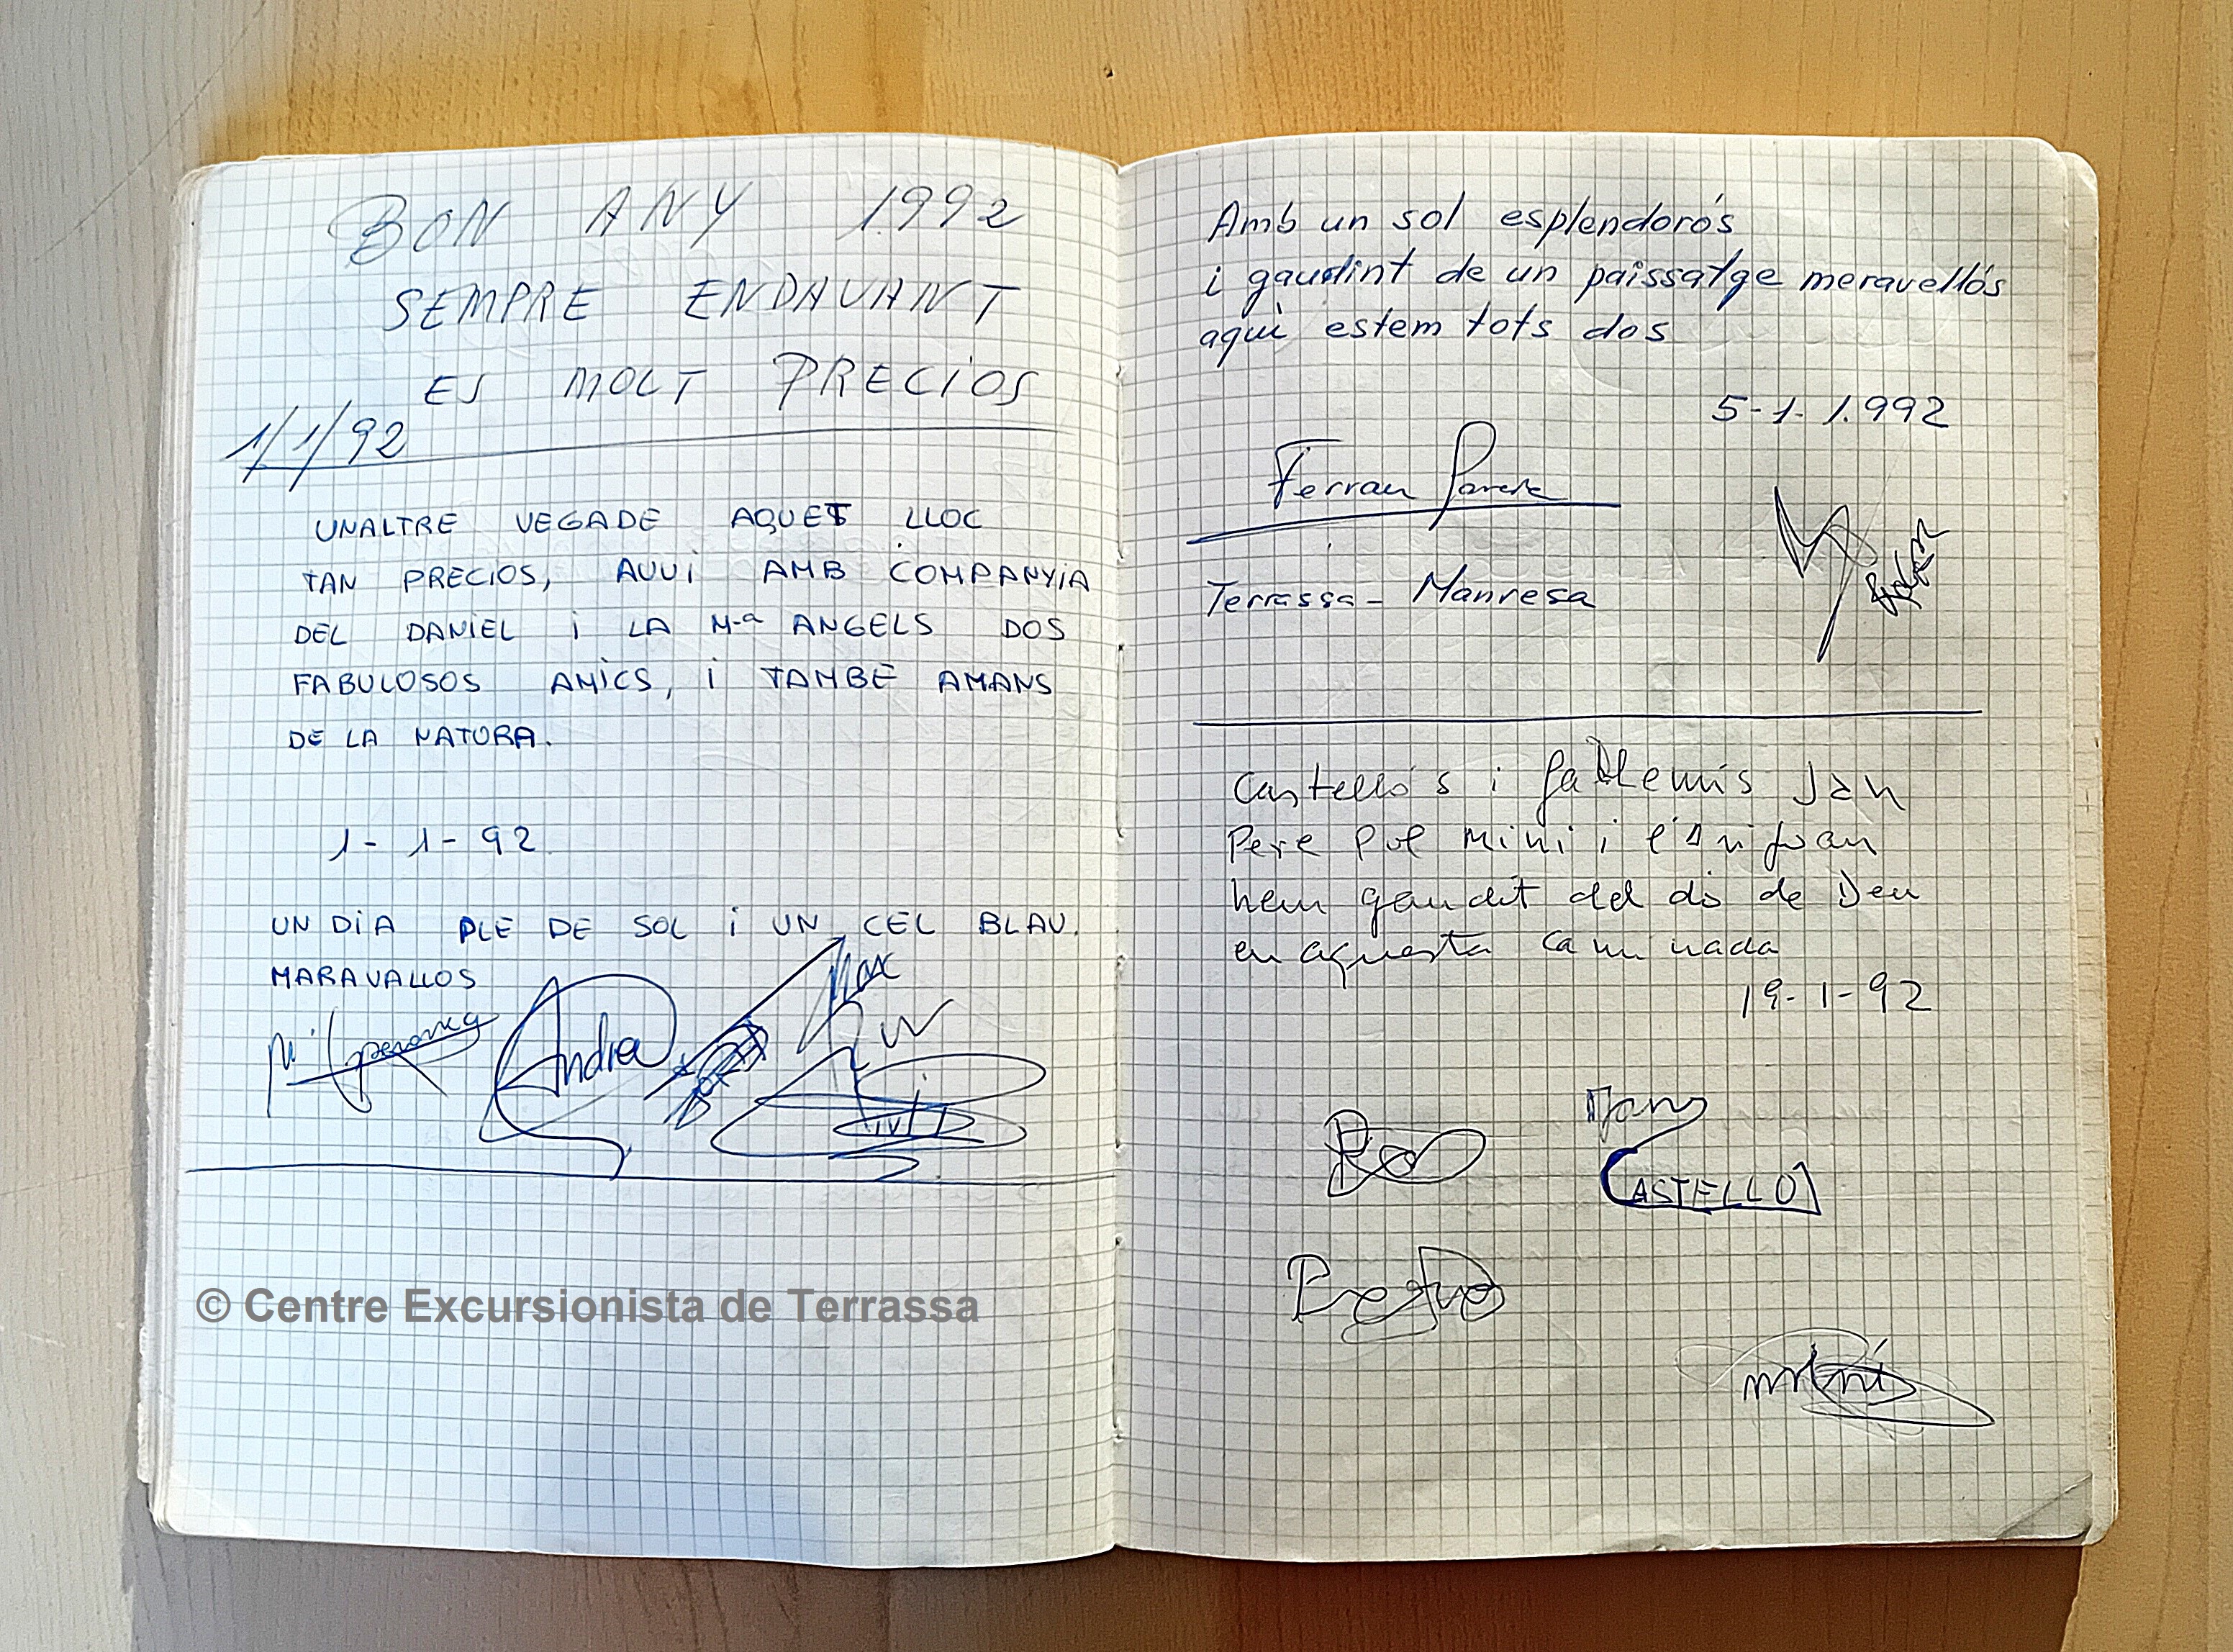 BON ANY 1992
SEMPRE ENDAVANT
ES MOLT PRECIOS
1/1/92
UNALTRE VEGADE AQUET LLOC
TAN PRECIOS, AVUI AMB COMPANYIA
DEL DANIEL i LA Mª ANGELS DOS
FABULOSOS AMICS, i TAMBE AMANS
DE LA NATORA.
1-1-92
UN DIA PLE DE SOL i UN CEL BLAU.
MARAVALLOS
Andrea
© Centre Excursionista de Terrassa
Amb un sol esplendorós
i gaudint de un paissatge meravellós
aquì estem tots dos
5-1-1.992
Ferran
Terrassa - Manresa
Castelló's i Jan
Pere Pol Mini i
hem gaudit del dó de Deu
en aquesta caminada
19-1-92
CASTELLO